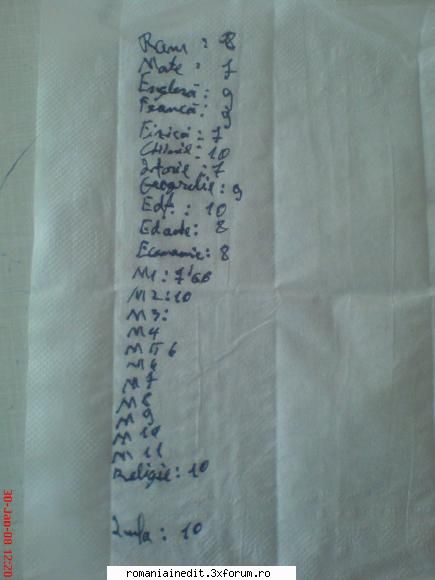 Rom : 8
Mate : 7
Engleză : 9
Franca : 9
Fizica : 7
Chimie : 10
Istorie : 7
Geografie : 9
Edf. : 10
Ed ante : 8
Economie : 8
M1 : 7
M2 : 10
M3 :
M4
M 6
M6
M7
M8
M9
M 10
M 11
Religie : 10
: 10
30-Jan-08 12:20
romaniainedit.3xforum.ro